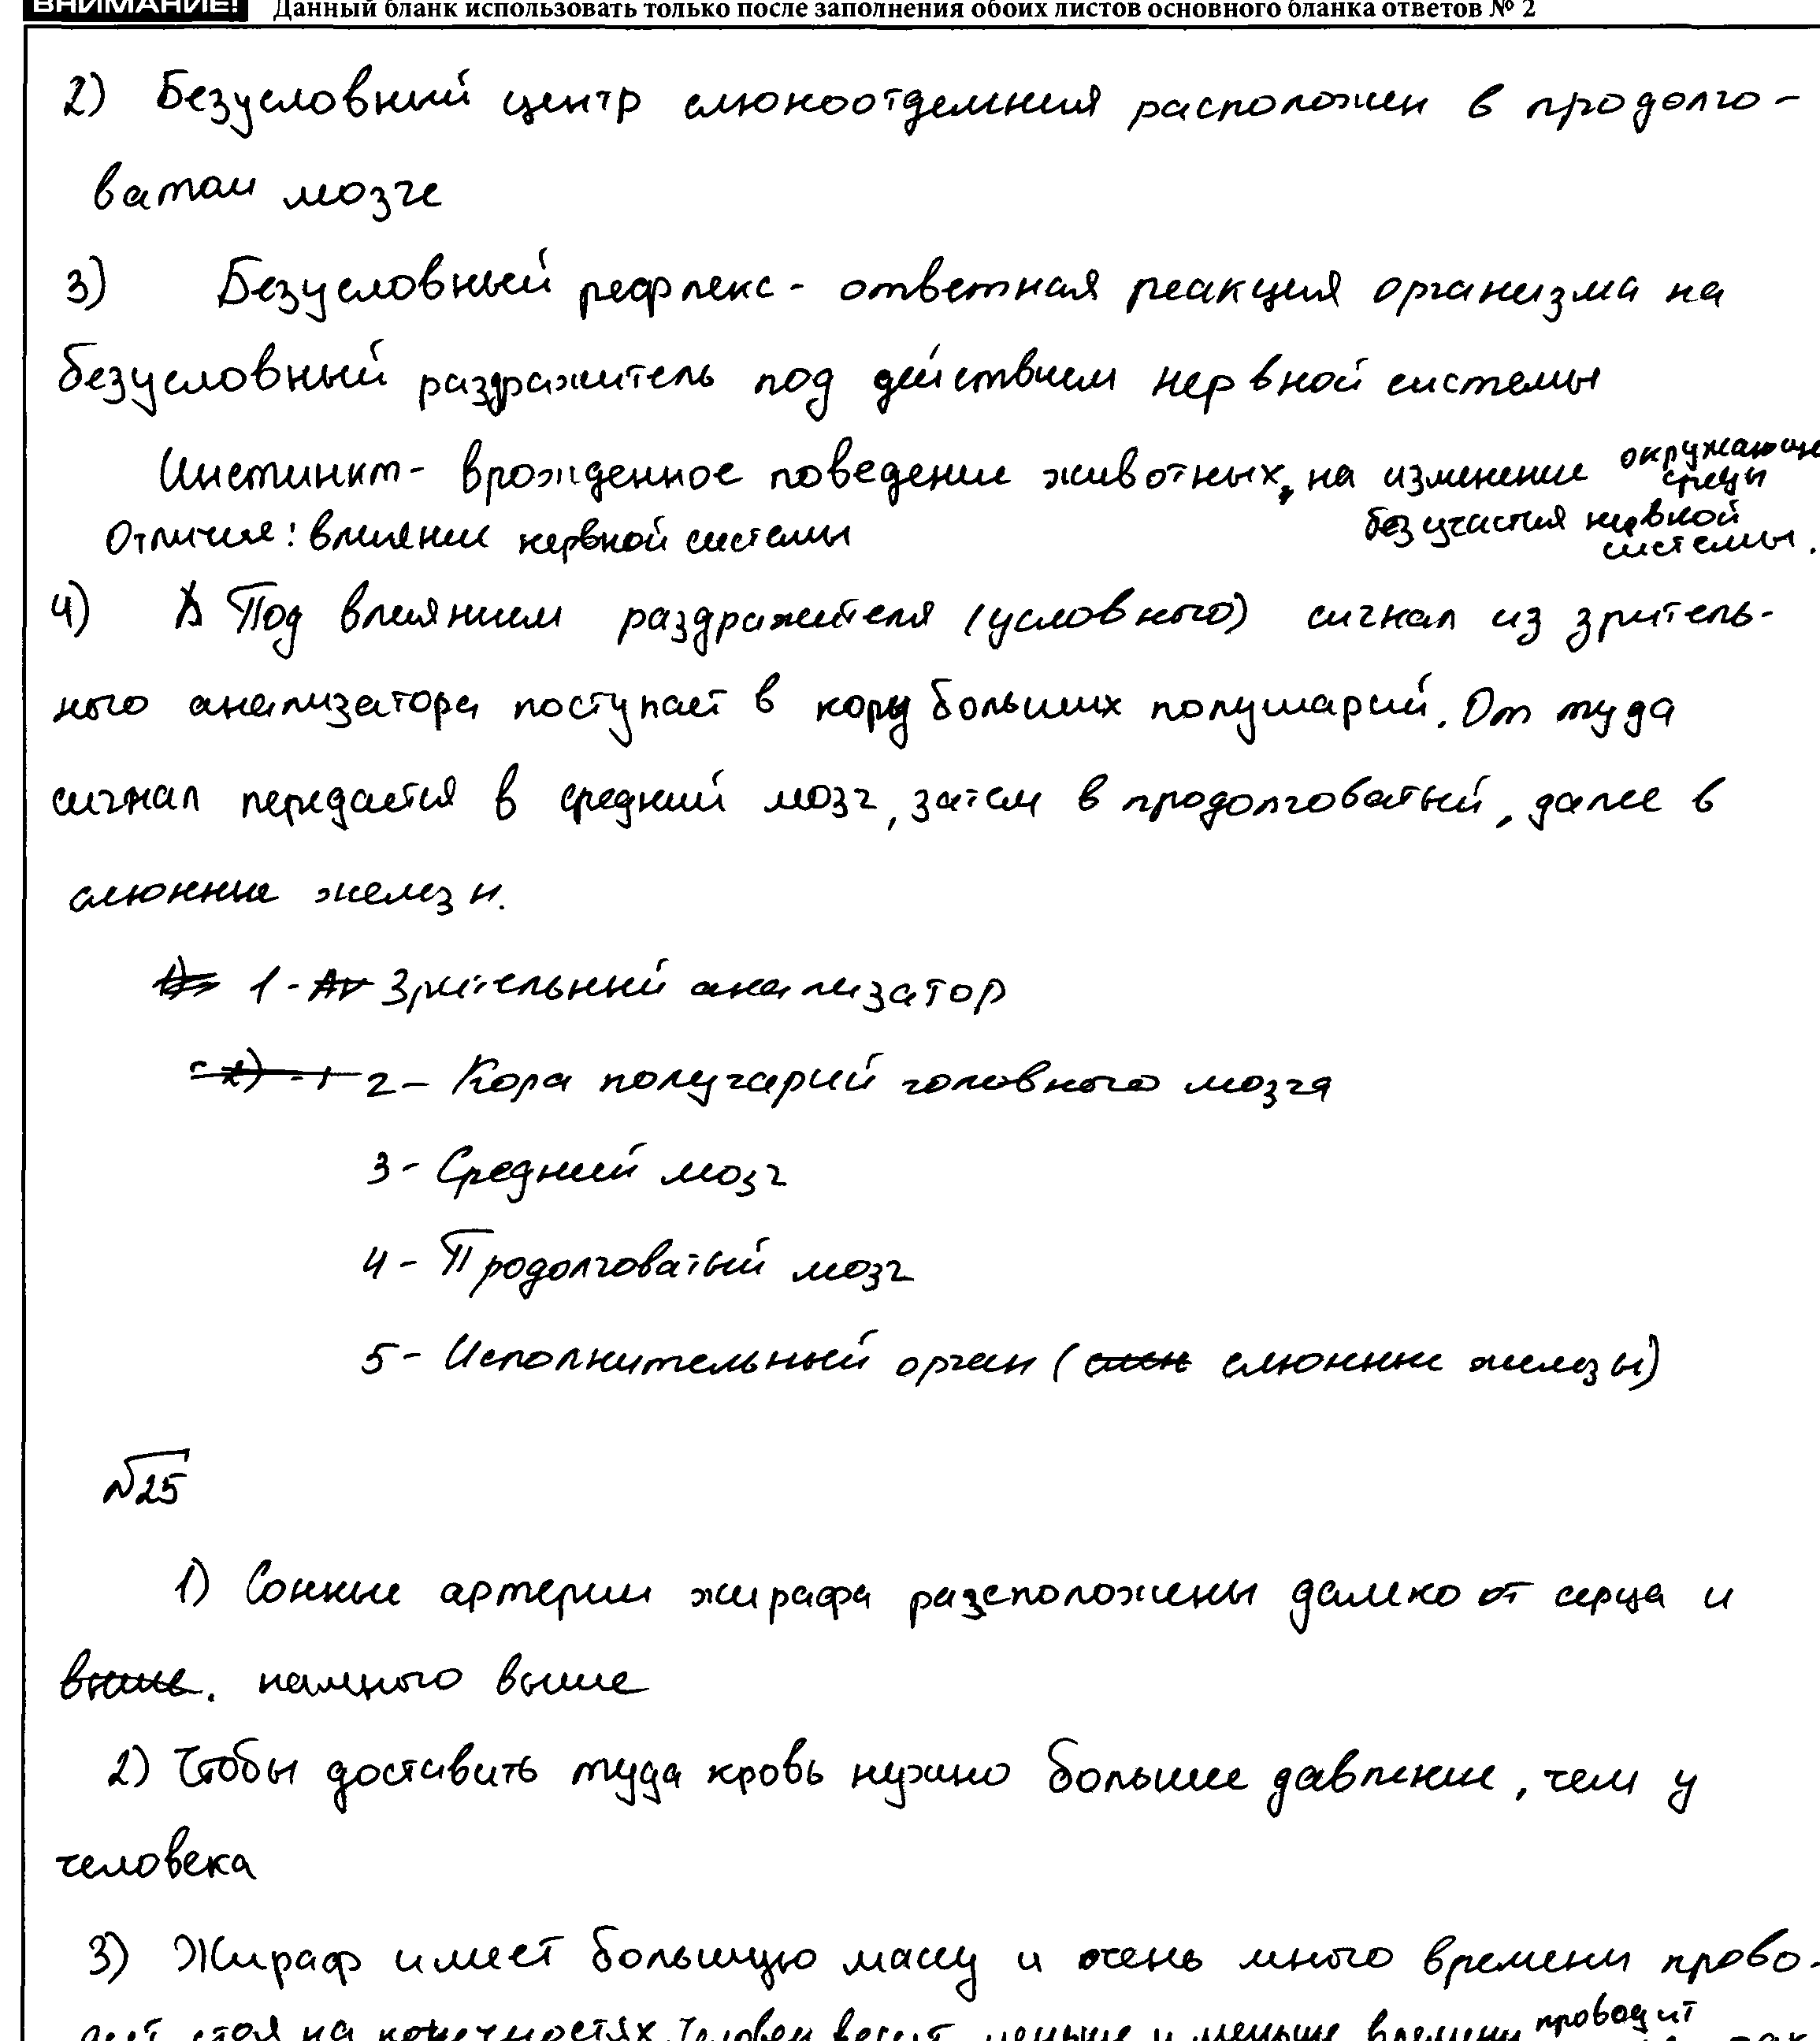 ВНИМАНИЕ! Данный бланк использовать только после заполнения обоих листов основного бланка ответов № 2
2) Безусловный центр слюноотделения расположен в продолго-
ватом мозге
3) Безусловный рефлекс - ответная реакция организма на
безусловный раздражитель под действием нервной системы
Инстинкт - врожденное поведение животных, на изменение окружающе
среды
без участия нервной
системы.
Отличие: влияние нервной системы
4) Под влиянием раздражителя (условного) сигнал из зритель-
ного анализатора поступает в кору больших полушарий. От туда
сигнал передается в средний мозг, затем в продолговатый, далее в
слюнные железы.
1 - Зрительный анализатор
2 - Кора получарий головного мозга
3 - Средний мозг
4 - Продолговатый мозг
5 - Исполнительный орган (слюнные железы)
№25
1) Сонные артерии жирафа расположены далеко от серца и
намного выше
2) Чтобы доставить туда кровь нужно большее давление, чем у
человека
3) Жираф имеет большую массу и очень много времени прово-
дит стоя на конечностях. Человек весит меньше и меньше времени проводит